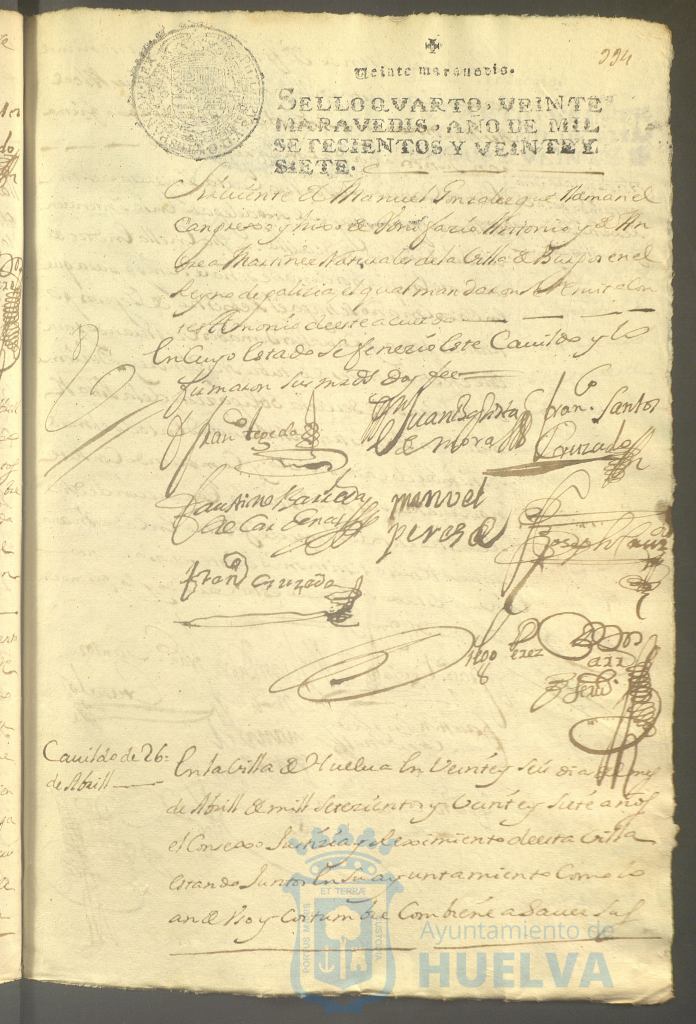 994
Veinte marauedis.
SELLO QVARTO, VEINTE
MARAVEDIS, AÑO DE MIL
SETECIENTOS Y VEINTE Y
SIETE.
de Manuel Gonzales que llaman el
Cangrexo y hixo de Bonifazio Antonio y de An
drea Martinez Naturales de la Villa de en el
Reyno de galizia el qual mandaron se Remita Con
testimonio de este acuerdo
En Cuyo Estado se fenezio Este Cauildo y lo
firmaron sus mrds doy fee
Fran.co Zepeda
Juan Bptta
de Mora
Fran.co Santos
Cruzado
Faustino Barreda
de Cardenas
manuel
peres
Joseph Cruz
Fran.co Cruzado
Diego Perez
Cauildo de 26
de Abrill
En la Villa de Huelua En Veinte y seis dias del mes
de Abrill de mill setezientos y Veinte y siete años
el Consexo Justizia y Reximiento de esta Villa
estando Juntos En su ayuntamiento Como lo
an de Uso y Costumbre Combiene a Sauer Sus
PORTUS MARIS
ET TERRÆ
CUSTODIA
Ayuntamiento de
HUELVA